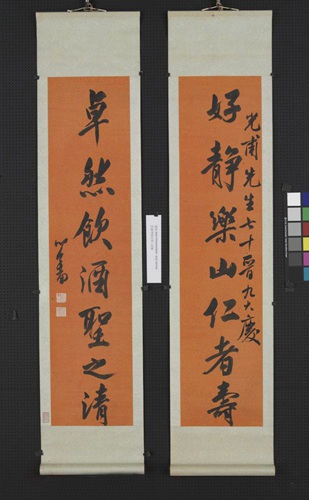 好靜樂山仁者壽
光甫先生七十晉九大慶
卓然飲酒聖之清
心畬